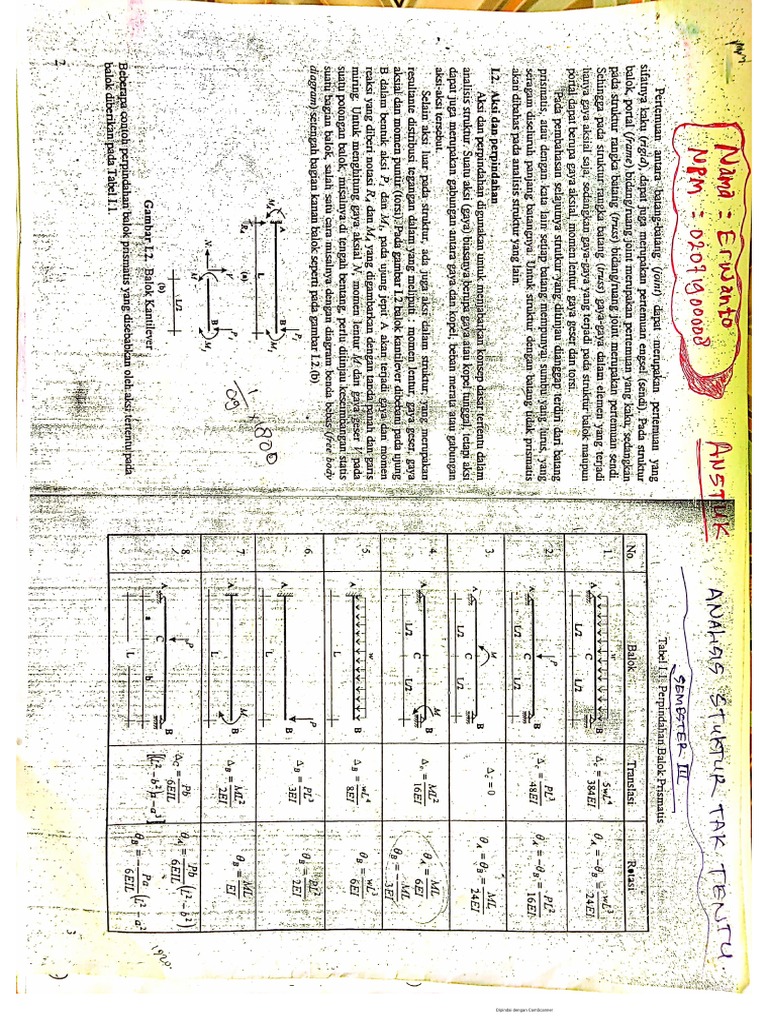 Nama : Erwanto
NPM : 0207190008
ANSTUK
ANALISIS STUKTUR TAK TENTU
SEMESTER III
Pertemuan antara batang-batang (joint) dapat merupakan pertemuan yang
sifatnya kaku (rigid), dapat juga merupakan pertemuan engsel (sendi). Pada struktur
balok, portal (frame) bidang/ruang joint merupakan pertemuan yang kaku, sedangkan
pada struktur rangka batang (truss) bidang/ruang joint merupakan pertemuan sendi.
Sehingga pada struktur rangka batang (truss) gaya-gaya dalam elemen yang terjadi
hanya gaya aksial saja, sedangkan gaya-gaya yang terjadi pada struktur balok maupun
portal dapat berupa gaya aksial, momen lentur, gaya geser dan torsi.
Pada pembahasan selajutnya strutkur yang ditinjau dianggap terdiri dari batang
prismatis, atau dengan kata lain setiap batang mempunyai sumbu yang lurus, yang
seragam diseluruh panjang batangnya. Untuk struktur dengan batang tidak prismatis
akan dibahas pada analisis struktur yang lain.
I.2. Aksi dan perpindahan
Aksi dan perpindahan digunakan untuk menjabarkan konsep dasar tertentu dalam
analisis struktur. Suatu aksi (gaya) biasanya berupa gaya atau kopel tunggal, tetapi aksi
dapat juga merupakan gabungan antara gaya dan kopel, beban merata atau gabungan
aksi-aksi tersebut.
Selain aksi luar pada struktur, ada juga aksi dalam struktur, yang merupakan
resultante distribusi tegangan dalam yang meliputi : momen lentur, gaya geser, gaya
aksial dan momen puntir (torsi). Pada gambar I.2 balok kantilever dibebani pada ujung
B dalam bentuk aksi P₁ dan M₁, pada ujung jepit A akan terjadi gaya dan momen
reaksi yang diberi notasi R_A dan M_A yang digambarkan dengan tanda panah dan garis
miring. Untuk menghitung gaya aksial N, momen lentur M dan gaya geser V pada
suatu potongan balok, misalnya di tengah bentang, perlu ditinjau kesetimbangan statis
suatu bagian balok, salah satu cara misalnya dengan diagram benda bebas (free body
diagram) setengah bagian kanan balok seperti pada gambar I.2.(b)
M_A A B P₁ M₁
R_A L
(a)
N M V B P₁ M₁
L/2
(b)
Gambar I.2. Balok Kantilever
Beberapa contoh perpindahan balok prismatis yang disebabkan oleh aksi tertentu pada
balok diberikan pada Tabel I.1.
Tabel I.1. Perpindahan Balok Prismatis
No. Balok Translasi Rotasi
1. A w C B L/2 L/2 Δ_c = 5wL⁴/384EI θ_A = -θ_B = wL³/24EI
2. A P C B L/2 L/2 Δ_c = PL³/48EI θ_A = -θ_B = PL²/16EI
3. A M C B L/2 L/2 Δ_c = 0 θ_A = θ_B = ML/24EI
4. A C M B L/2 L/2 Δ_c = ML²/16EI θ_A = ML/6EI θ_B = -ML/3EI
5. A w B L Δ_B = wL⁴/8EI θ_B = wL³/6EI
6. A P B L Δ_B = PL³/3EI θ_B = PL²/2EI
7. A M B L Δ_B = ML²/2EI θ_B = ML/EI
8. A P C B a b L Δ_C = Pb/6EIL (L² - b²) - a³ θ_A = Pb/6EIL (L² - b²) θ_B = - Pa/6EIL (L² - a²
1920
Dipindai dengan CamScanner